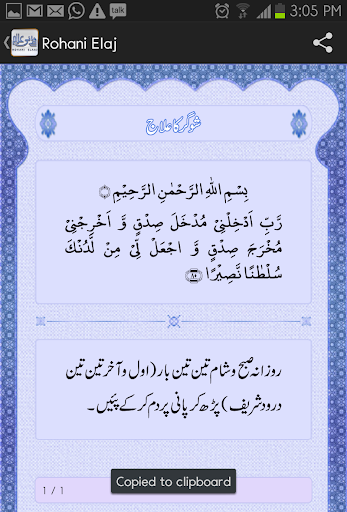 talk
3:05 PM
Rohani Elaj
شوگر کا علاج
بِسْمِ اللهِ الرَّحْمٰنِ الرَّحِيْمِ
رَبِّ اَدْخِلْنِيْ مُدْخَلَ صِدْقٍ وَّ اَخْرِجْنِيْ
مُخْرَجَ صِدْقٍ وَّ اجْعَلْ لِّيْ مِنْ لَّدُنْكَ
سُلْطٰنًا نَّصِيْرًا ﴿۸۰﴾
روزانہ صبح و شام تین تین بار (اول و آخر تین تین
درود شریف) پڑھ کر پانی پر دم کر کے پئیں۔
1 / 1
Copied to clipboard